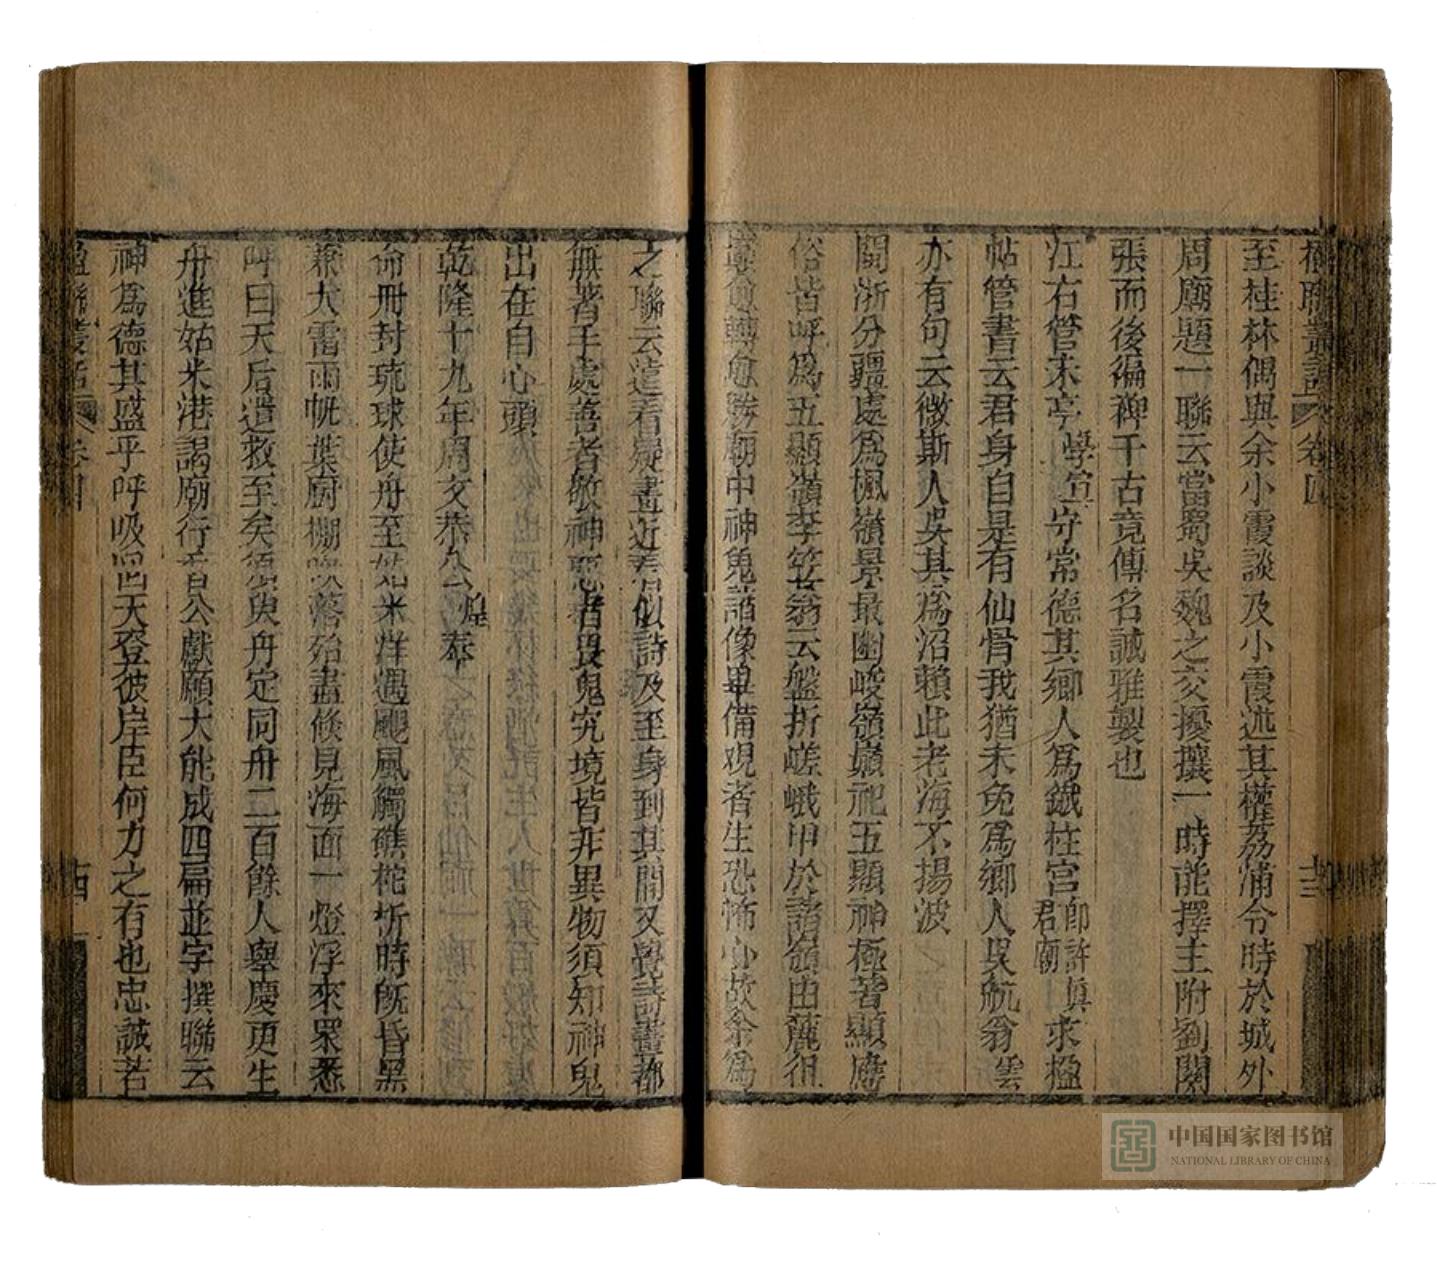 楹聯叢話 卷四 十三
至桂林偶與余小霞談及小霞述其權荔浦令時於城外
周廟題一聯云當蜀吳魏之交擾攘一時能擇主附劉關
張而後編裨千古竟傳名誠雅製也
江右管未亭學宣守常德其鄉人爲鐵柱宮卽許眞君廟求楹
帖管書云君身自是有仙骨我猶未免爲鄉人吳航翁雲
亦有句云微斯人吳其爲沼賴此老海不揚波
閩浙分疆處爲楓嶺景最幽峻嶺巔祀五顯神極著顯應
俗皆呼爲五顯嶺李笠翁云盤折嵯峨甲於諸嶺由麓徂
巔愈轉愈勝廟中神鬼諸像畢備觀者生恐怖心故余爲
之聯云遠看疑畫近看似詩及至身到其間又覺詩畫都
無著手處善者敬神惡者畏鬼究境皆非異物須知神鬼
出在自心頭
乾隆十九年周文恭公煌奉
命冊封琉球使舟至姑米洋遇颶風觸礁柁折時旣昏黑
兼大雷雨帆葉廚棚吹落殆盡倐見海面一燈浮來眾悉
呼曰天后遣救至矣須臾舟定同舟二百餘人舉慶更生
舟進姑米港謁廟行香公獻願大能成四扁並字撰聯云
神爲德其盛乎呼吸回天登彼岸臣何力之有也忠誠若
楹聯叢話 卷四 十四
中国国家图书馆
NATIONAL LIBRARY OF CHINA